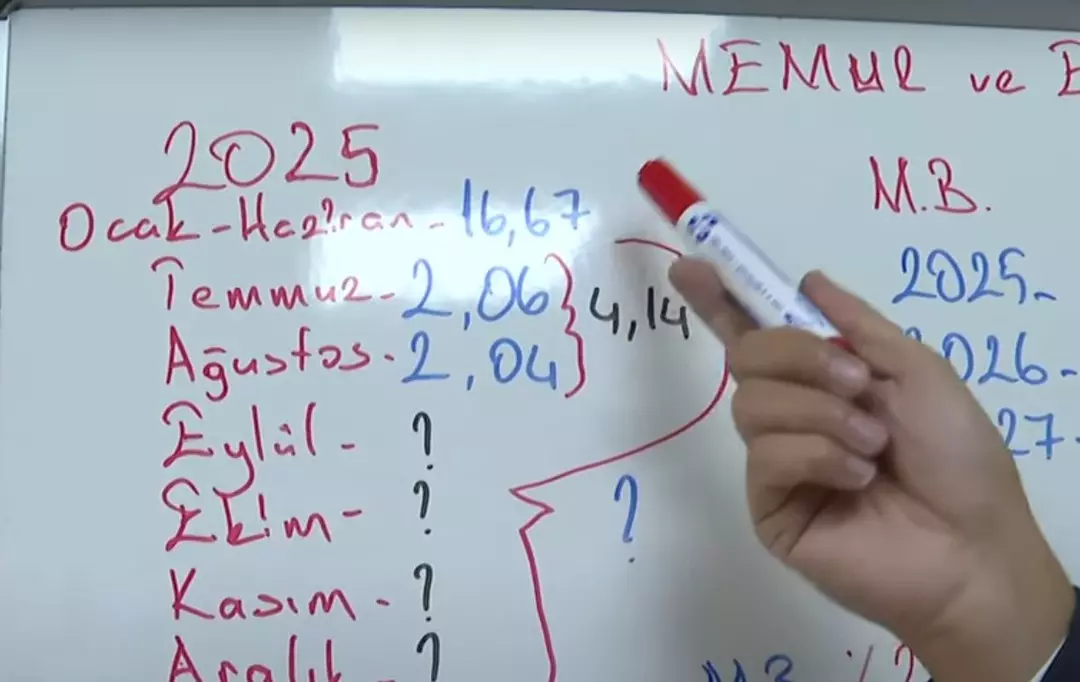 MEMUR ve E
2025
Ocak-Haziran-16,67
Temmuz-2,06
Ağustos-2,04
4,14
Eylül- ?
Ekim- ?
Kasım-?
Aralık-?
?
M.B.
2025-
2026-
27-